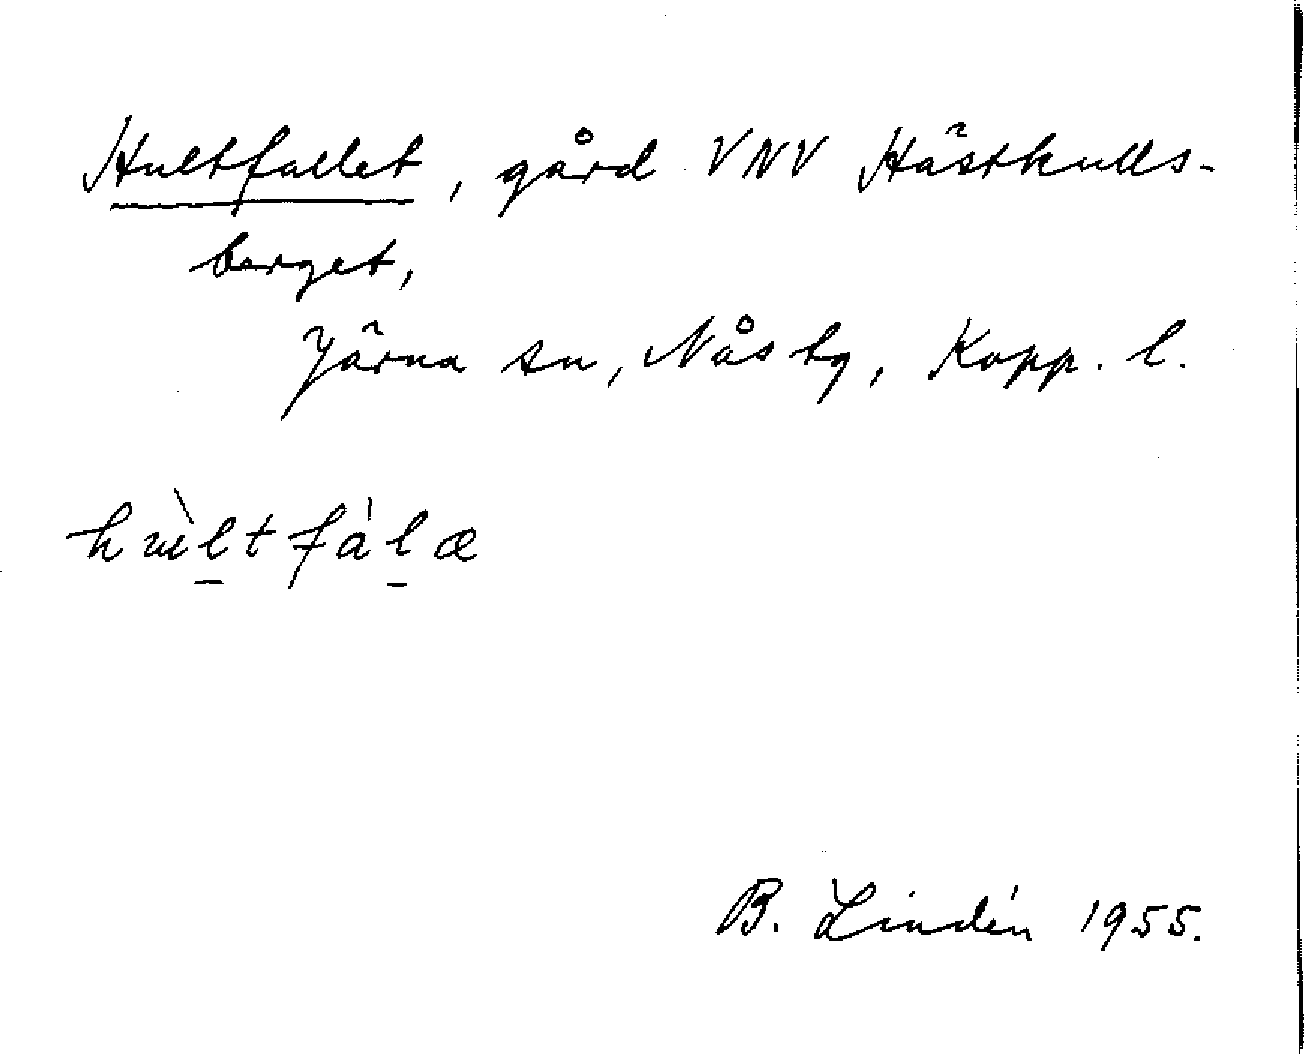 Hultfallet, gård VNV Hästkulls-
berget,
Järna sn, Nås tg, Kopp. l.
B. Lindén 1955.